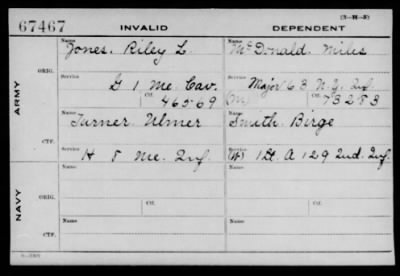 (3-H-8)
67467 INVALID DEPENDENT
Name Name
Jones, Riley L. McDonald, Miles
ARMY
ORIG.
Service Service
G 1 Me. Cav. Major 63 N.Y. Inf.
Ctf. 46569 (M) Ctf. 73283
Name Name
Turner Ulmer Smith Birge
CTF.
Service Service
H 8 Me. Inf. (W) 1 Lt. A 129 Ind. Inf.
NAVY
Name Name
ORIG.
Ctf. Ctf.
Name Name
CTF.